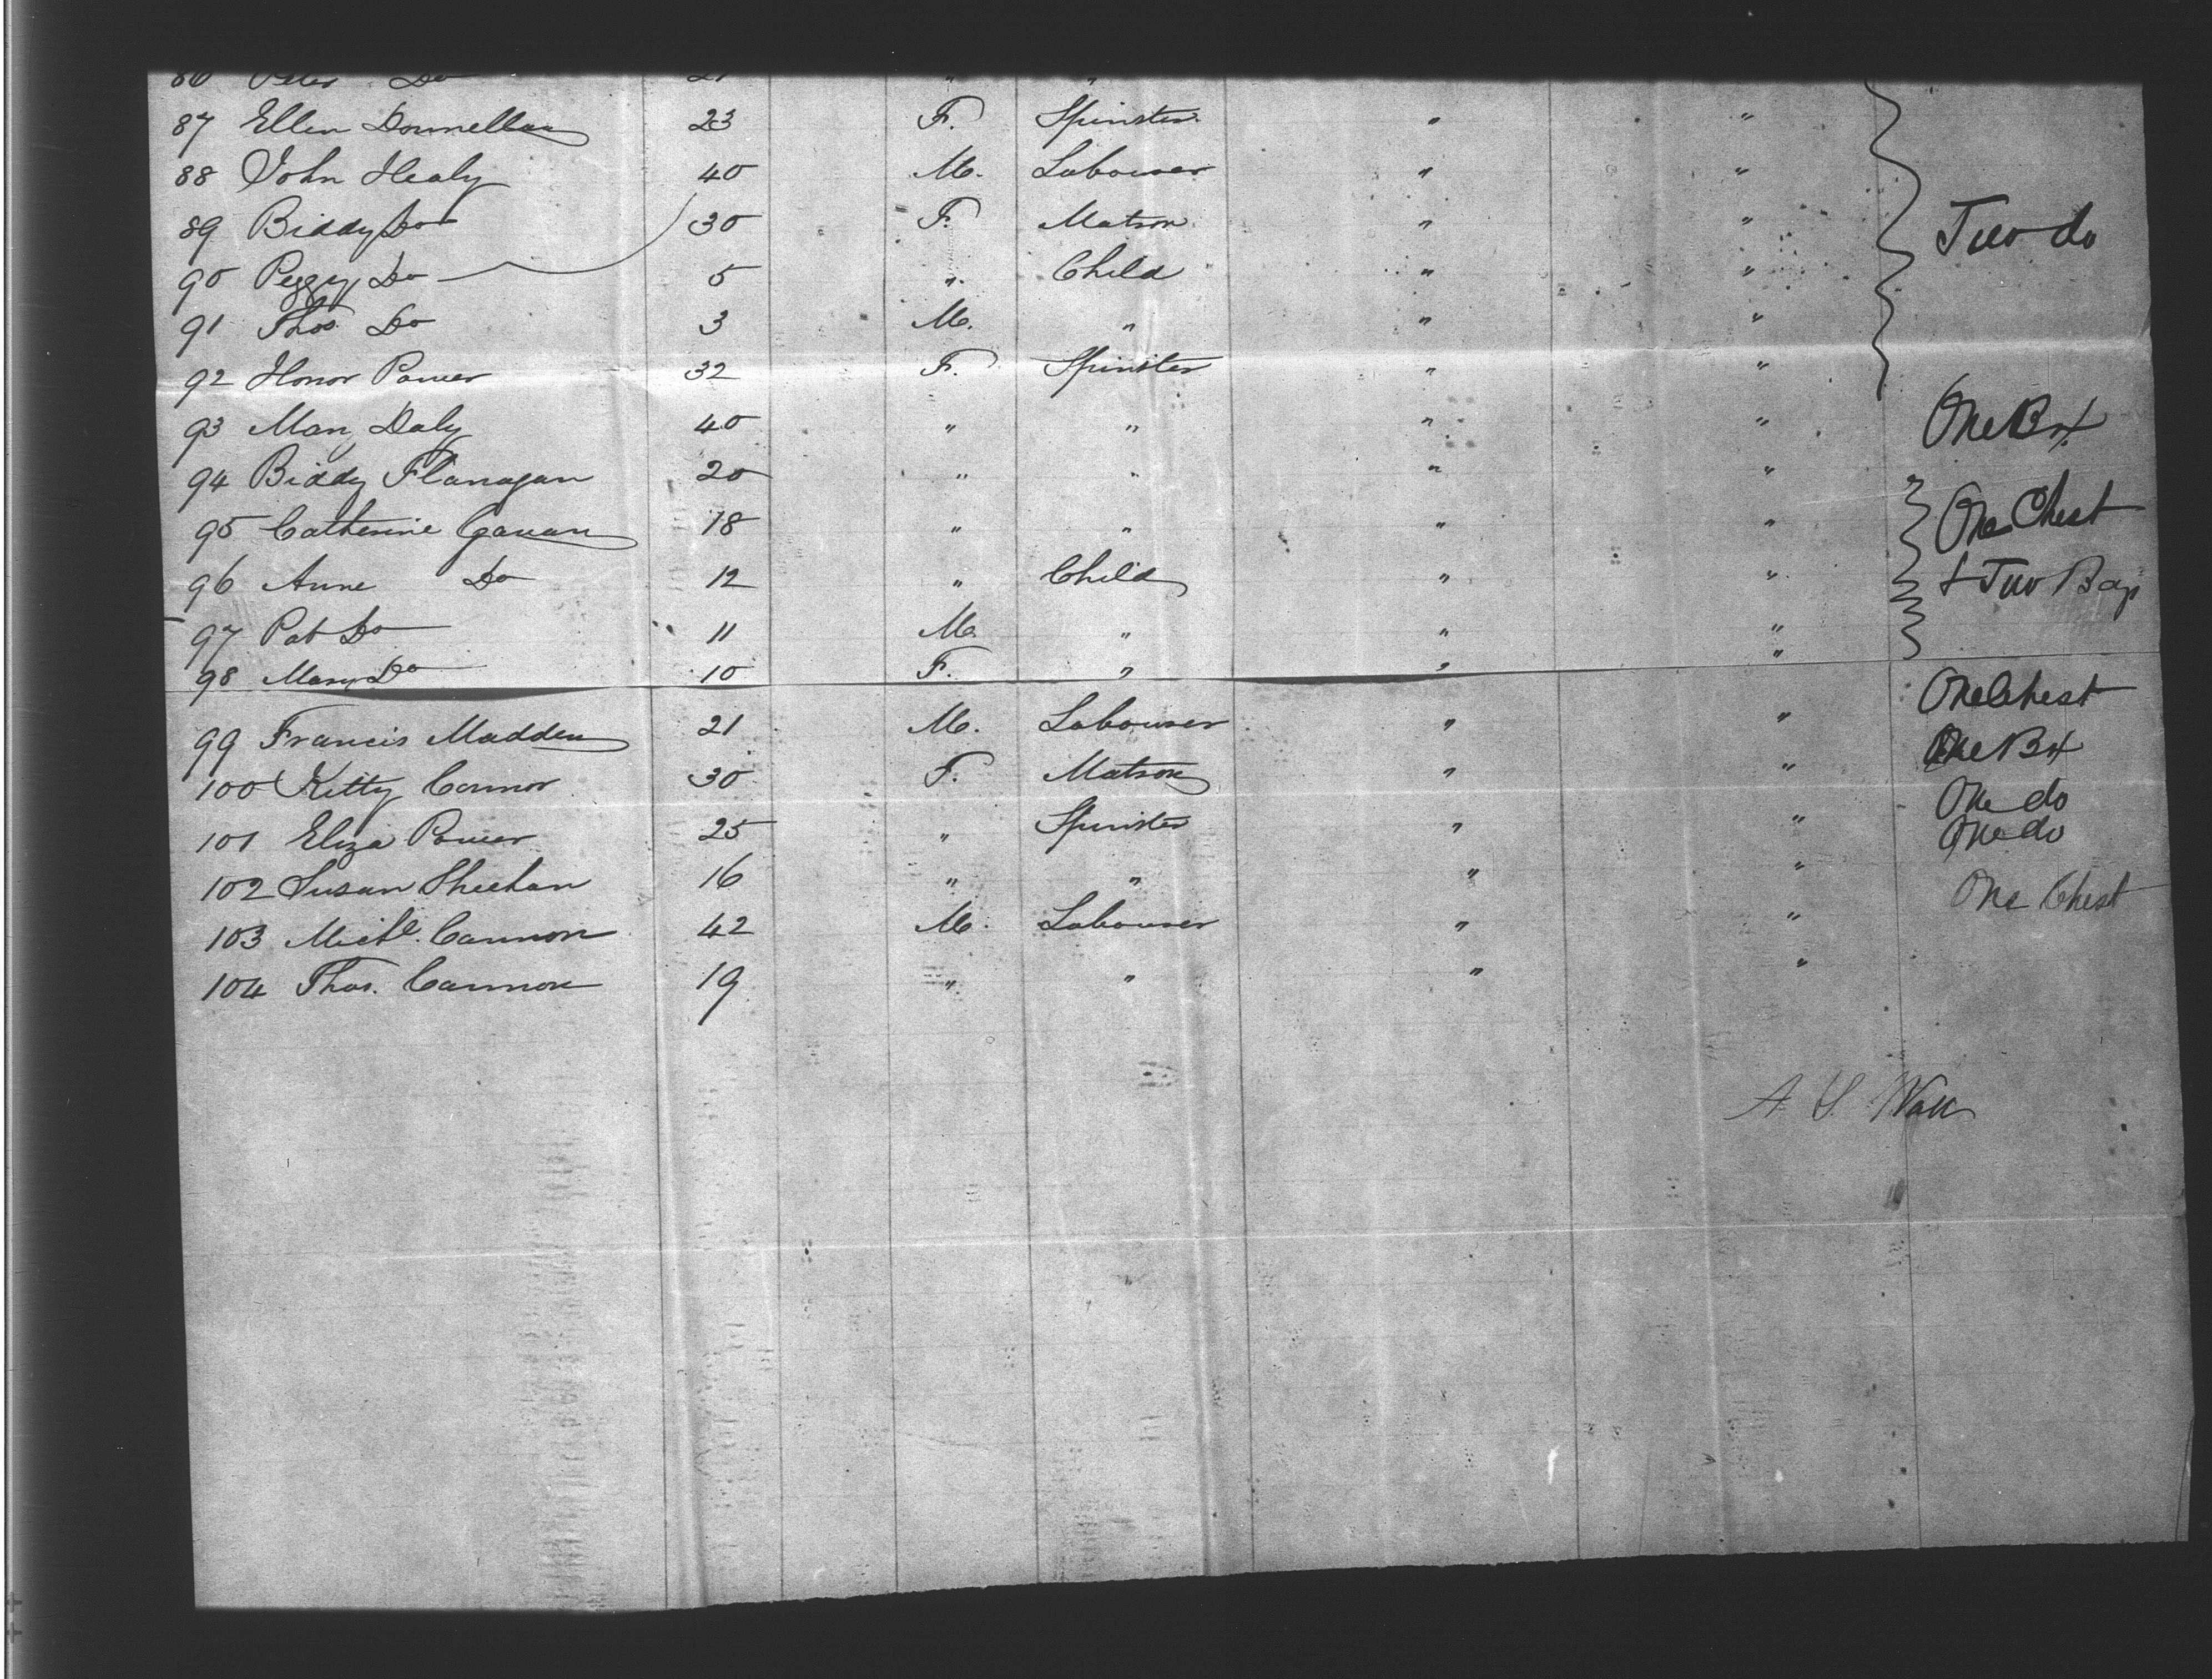 86 Peter Do 21 " "
87 Ellen Donnellan 23 F. Spinster " "
88 John Healy 40 M. Labourer " "
89 Biddy Do 30 F. Matron " " Two do
90 Peggy Do 5 " Child " "
91 Thos. Do 3 M. " " "
92 Honor Power 32 F. Spinster " "
93 Mary Daly 40 " " " " One Box
94 Biddy Flanagan 20 " " " "
95 Catherine Gavan 18 " " " " One Chest
96 Anne Do 12 " Child " " & Two Bags
97 Pat Do 11 M. " " "
98 Mary Do 10 F. " " "
99 Francis Madden 21 M. Labourer " " One Chest
100 Kitty Connor 30 F. Matron " " One Box
101 Eliza Power 25 " Spinster " " One do
102 Susan Sheehan 16 " " " " One do
103 Michl. Cannon 42 M. Labourer " " One Chest
104 Thos. Cannon 19 " " " "
A. S.